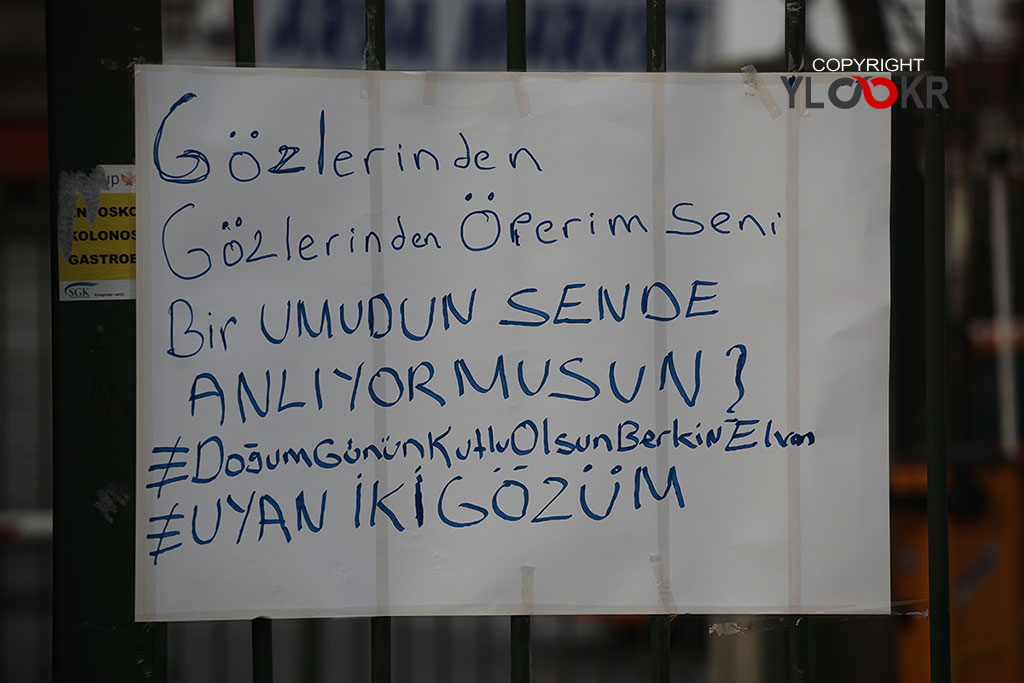 COPYRIGHT
YLOOKR
Gözlerinden
Gözlerinden Öperim seni
Bir UMUDUN SENDE
ANLIYORMUSUN?
#DoğumGününKutluOlsunBerkinElvan
#UYAN İKİGÖZÜM
KOLONOS
GASTROE
SGK